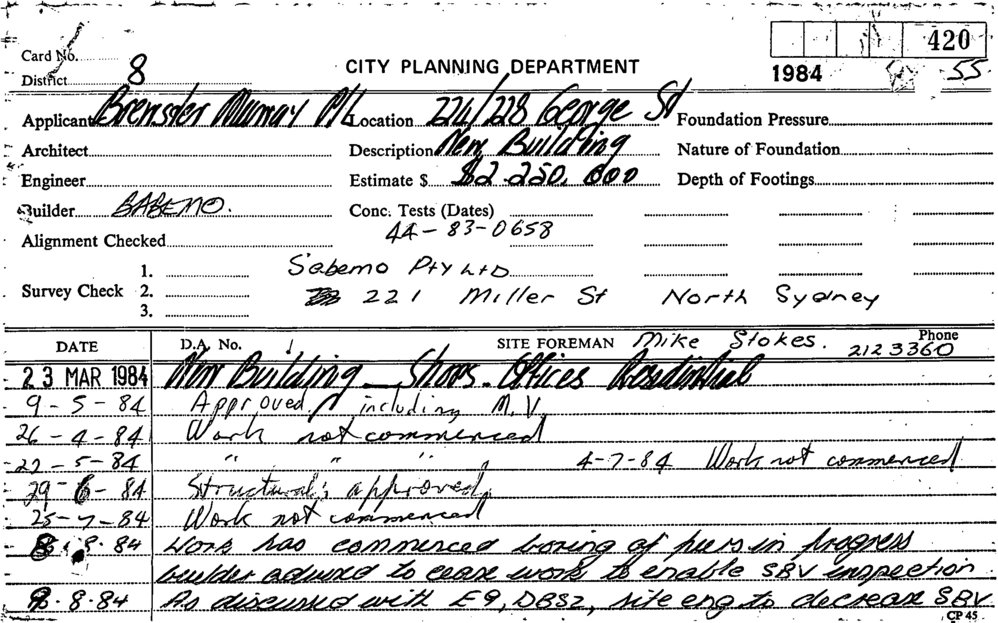 420
Card No.
District 8 CITY PLANNING DEPARTMENT 1984 55
Applicant Brewster Murray P/L Location 224/228 George St Foundation Pressure
Architect Description New Building Nature of Foundation
Engineer Estimate $ $2.250,000 Depth of Footings
Builder SABEMO. Conc. Tests (Dates)
44-83-0658
Alignment Checked
1. Sabemo Pty Ltd
Survey Check 2. 221 Miller St North Sydney
3.
DATE D.A. No. SITE FOREMAN Mike Stokes. Phone 2123360
23 MAR 1984 New Building - Shops - Offices Residential
9-5-84 Approved including M.V.
26-4-84 Work not commenced
22-5-84 " " " 4-7-84 Work not commenced
29-6-84 Structurals approved
25-7-84 Work not commenced
8.84 Work has commenced boring of piers in progress
builder advised to cease work to enable SBV inspection
8.84 As discussed with E9, DBS2, site eng to decrease SBV
CP 45